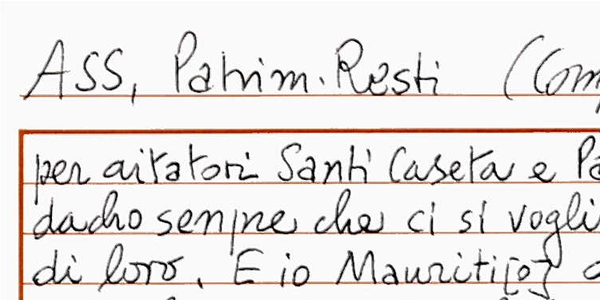 ASS, Patrim. Resti (Com
per aitatori Santi Caseta e Pa
dacho senpre che ci si vogli
di loro. E io Mauriti[o]